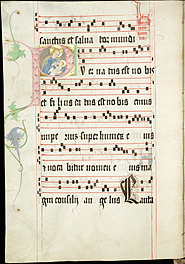 sanctus et salua tor mundi
uer natus est no bis
et fi lius da tus est no bis cuius
impe rium super humerum e ius
et uoca bitur nomen e ius ma
gni consilij an ge lus Canta